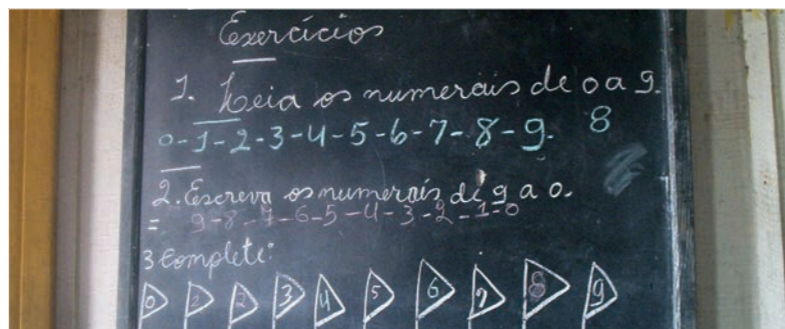 Exercícios
1. Leia os numerais de 0 a 9.
0-1-2-3-4-5-6-7-8-9. 8
2. Escreva os numerais de 9 a 0.
= 9-8-7-6-5-4-3-2-1-0
3 Complete:
0 2 2 3 4 5 6 7 8 9